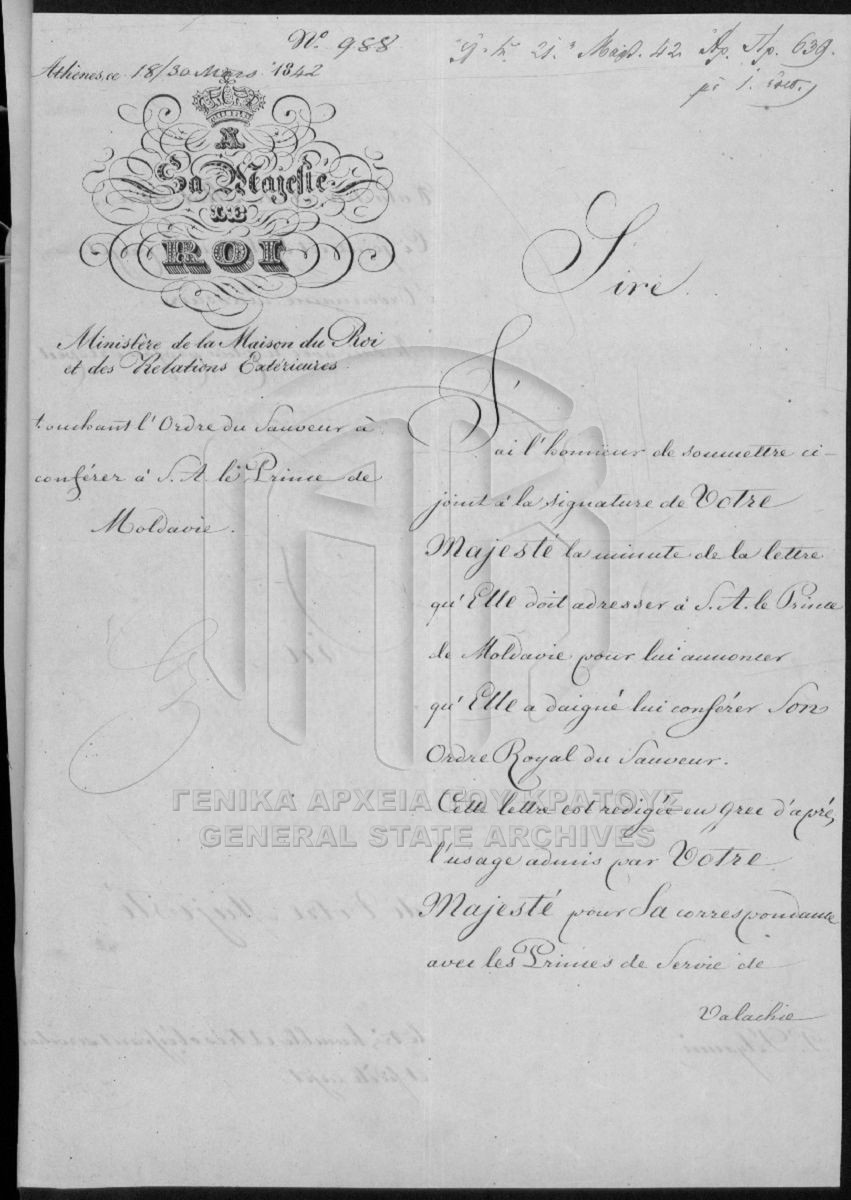 Nº 988
21. 42 Αρ. Πρ. 639.
Athènes, ce 18/30 Mars 1842
A
Sa Majesté
LE
ROI
Ministère de la Maison du Roi
et des Relations Extérieures.
touchant l'Ordre du Sauveur à
conférer à S. A. le Prince de
Moldavie.
Sire
J'ai l'honneur de soumettre ci-
joint à la signature de Votre
Majesté la minute de la lettre
qu'Elle doit adresser à S. A. le Prince
de Moldavie pour lui annoncer
qu'Elle a daigné lui conférer Son
Ordre Royal du Sauveur.
Cette lettre est redigée en grec d'après
l'usage admis par Votre
Majesté pour Sa correspondance
avec les Princes de Servie de
Valachie
ΓΕΝΙΚΑ ΑΡΧΕΙΑ ΤΟΥ ΚΡΑΤΟΥΣ
GENERAL STATE ARCHIVES